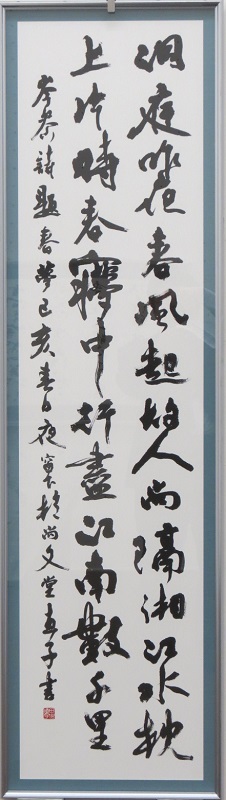 洞庭昨夜春風起故人尚隔湘江水枕
上片時春夢中行盡江南數千里
岑參詩題春夢己亥春日夜窗下於尚文堂直子書